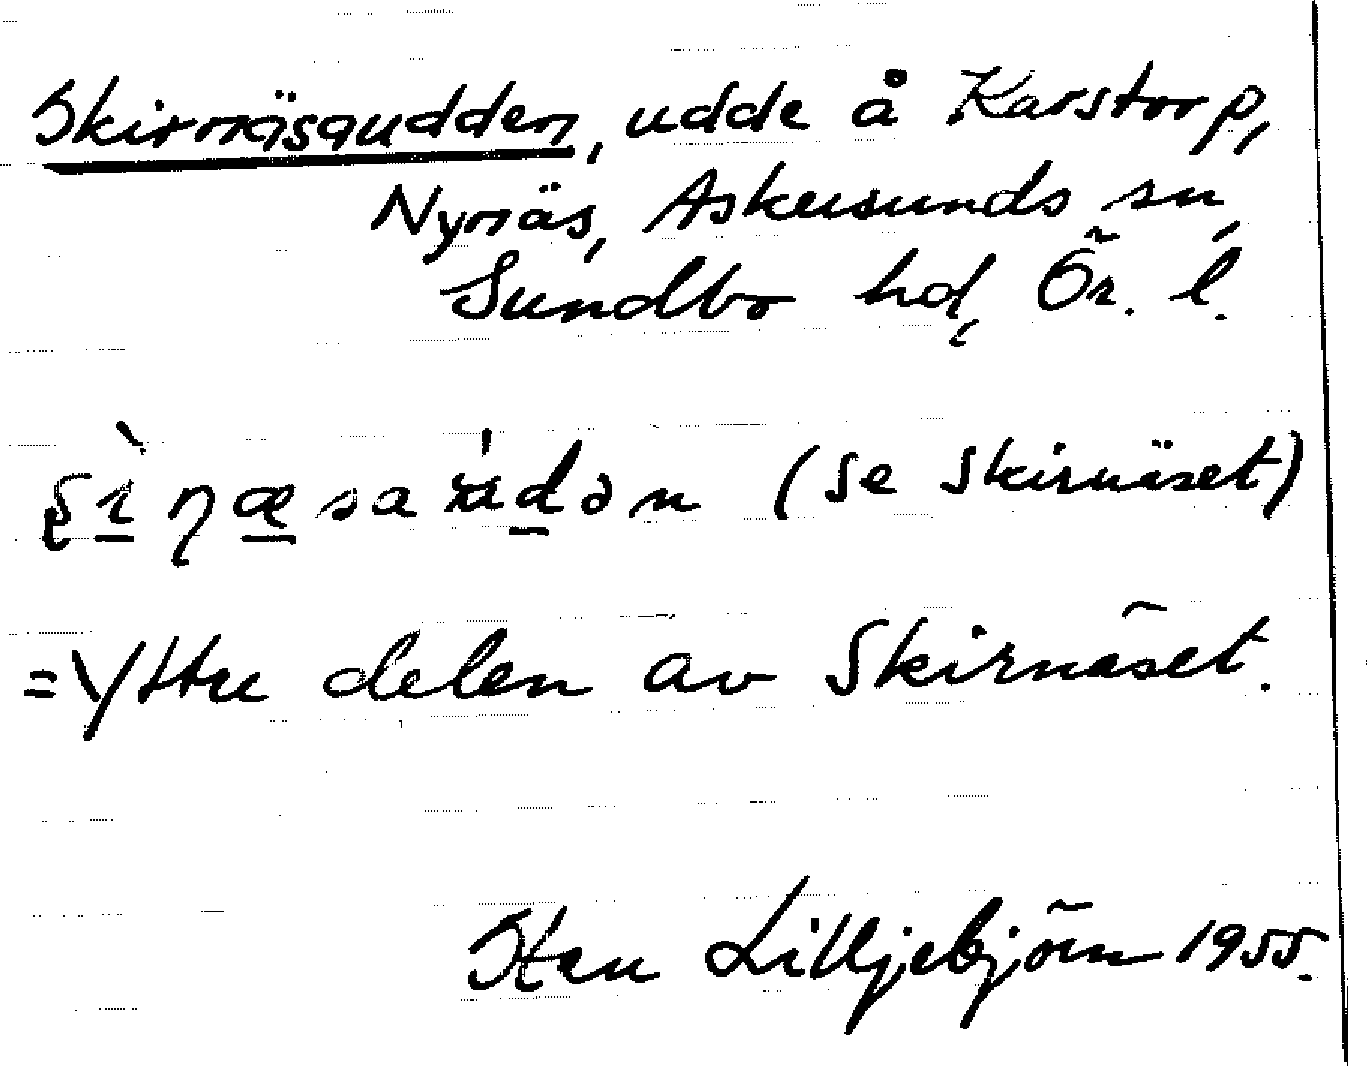 Skirnäsaudden, udde å Karstorp,
Nyrnäs, Askersunds sn,
Sundbo hd, Ör. l.
(se Skirnäset)
= Yttre delen av Skirnäset.
Sten Lilljebjörn 1955.